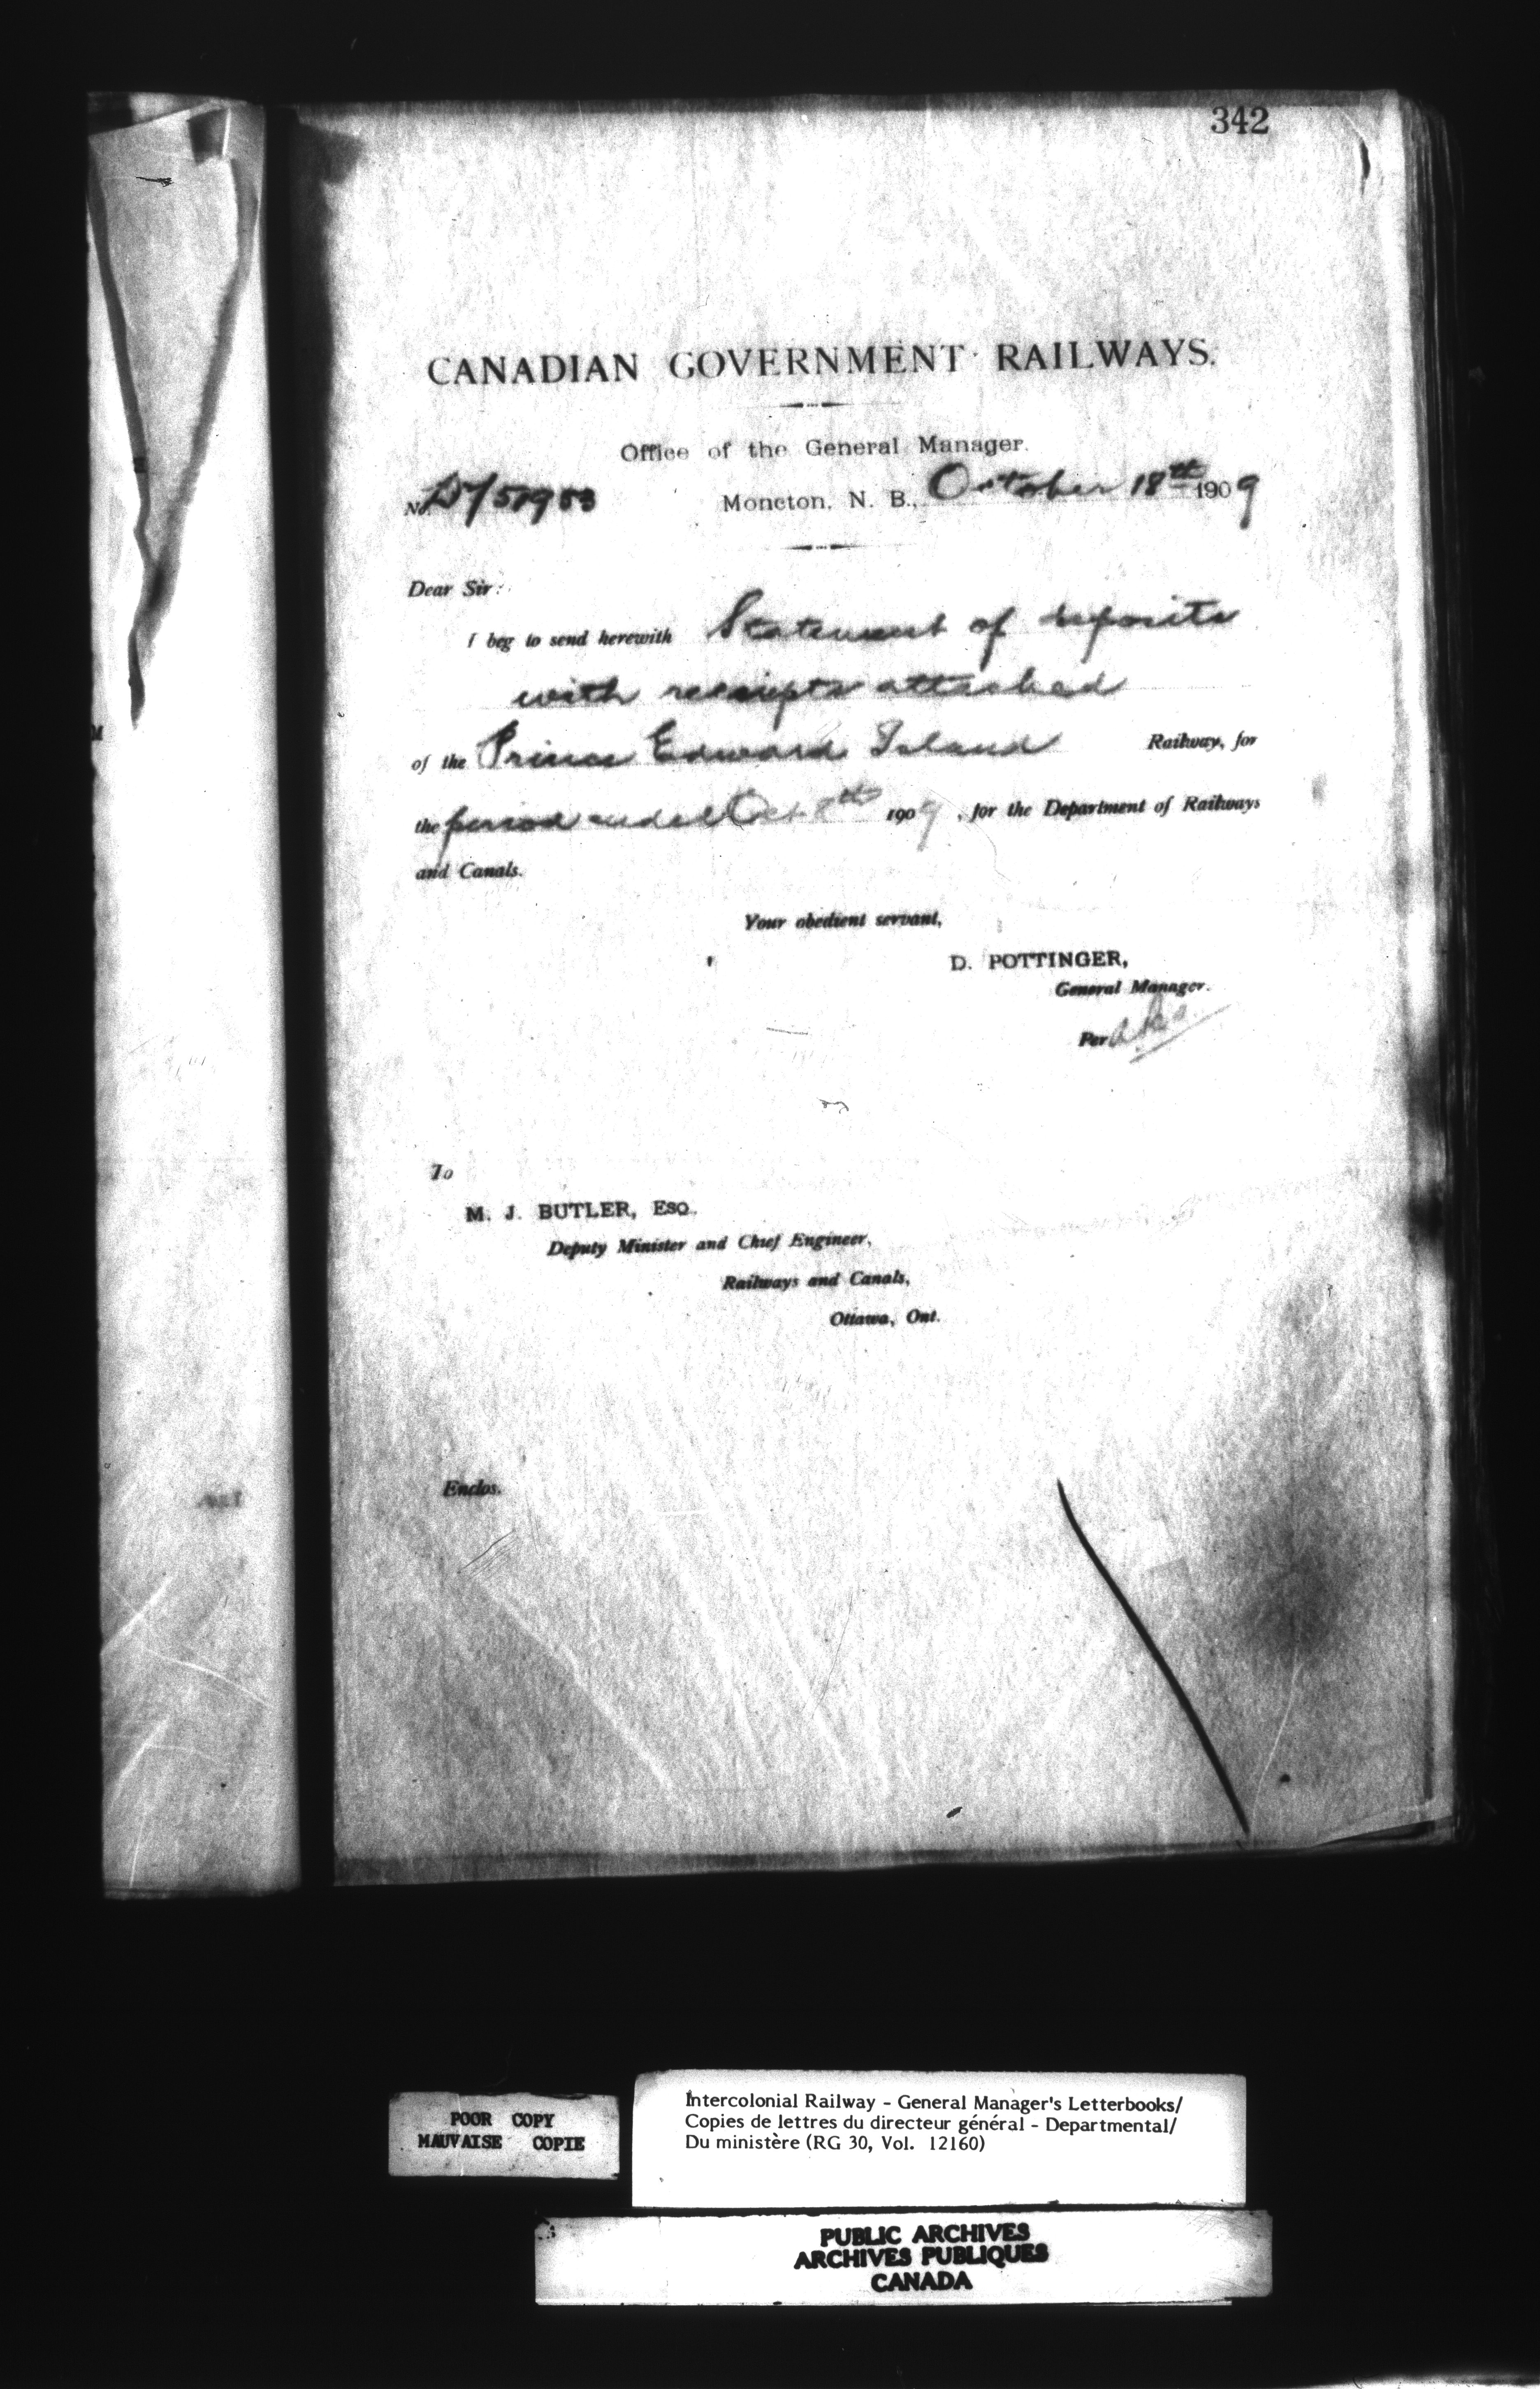 342
CANADIAN GOVERNMENT RAILWAYS.
Office of the General Manager.
No. Moncton, N. B., October 18th 1909
Dear Sir:
I beg to send herewith Statement of deposits
with receipts attached
of the Prince Edward Island Railway, for
the period ended Oct 8th 1909, for the Department of Railways
and Canals.
Your obedient servant,
D. POTTINGER,
General Manager.
Per
To
M. J. BUTLER, ESQ.
Deputy Minister and Chief Engineer,
Railways and Canals,
Ottawa, Ont.
Enclos.
POOR COPY
MAUVAISE COPIE
Intercolonial Railway - General Manager's Letterbooks/
Copies de lettres du directeur général - Departmental/
Du ministère (RG 30, Vol. 12160)
PUBLIC ARCHIVES
ARCHIVES PUBLIQUES
CANADA